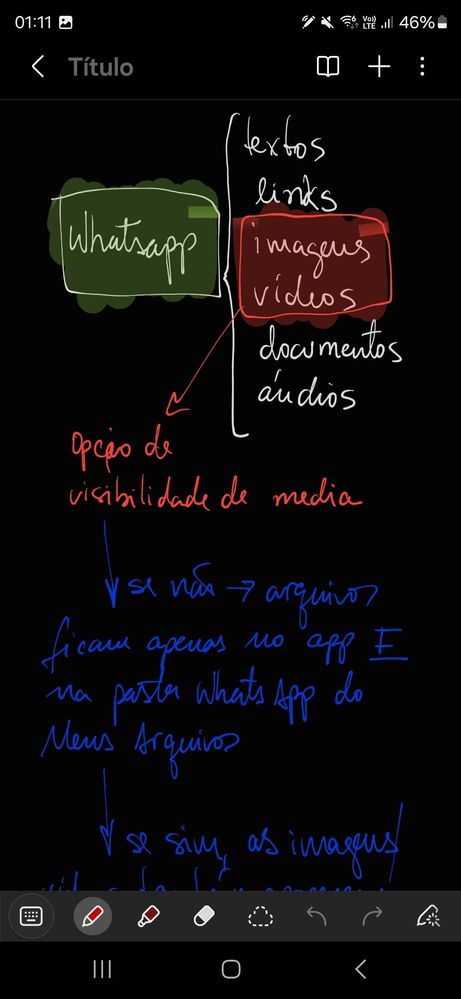 01:11
Vo)) LTE 46%
Título
textos
links
Whatsapp
imagens
vídeos
documentos
áudios
opção de
visibilidade de media
se não → arquivos
ficam apenas no app E
na pasta WhatsApp do
Meus Arquivos
se sim, as imagens/